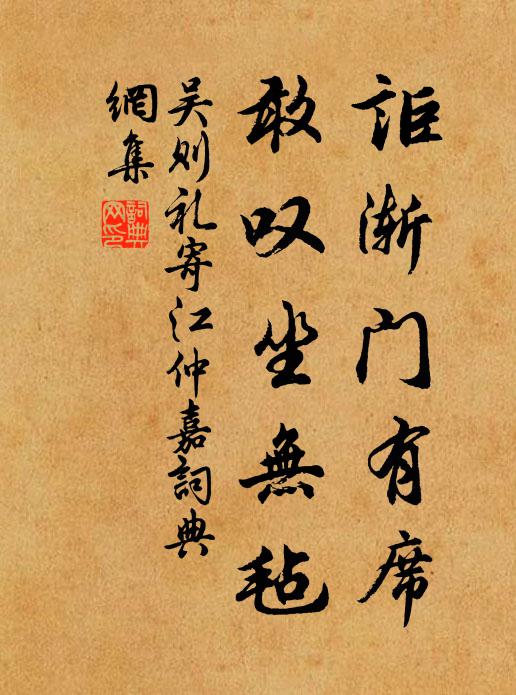 詎渐门有席
敢叹坐無毡
吴则礼寄江仲嘉詞典
網集
詞典
网印